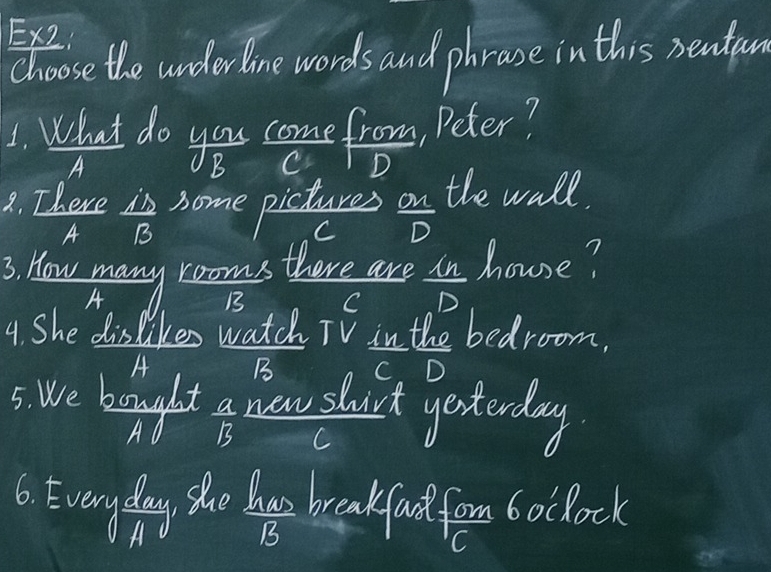 Ex2:
Choose the underline words and phrase in this sentanc
1. What do you come from, Peter?
A B C D
2. There is some pictures on the wall.
A B C D
3. How many rooms there are in house?
A B C D
4. She dislikes watch TV in the bedroom.
A B C D
5. We bought a new shirt yesterday.
A B C
6. Every day, she has breakfast fom 6 o'clock
A B C